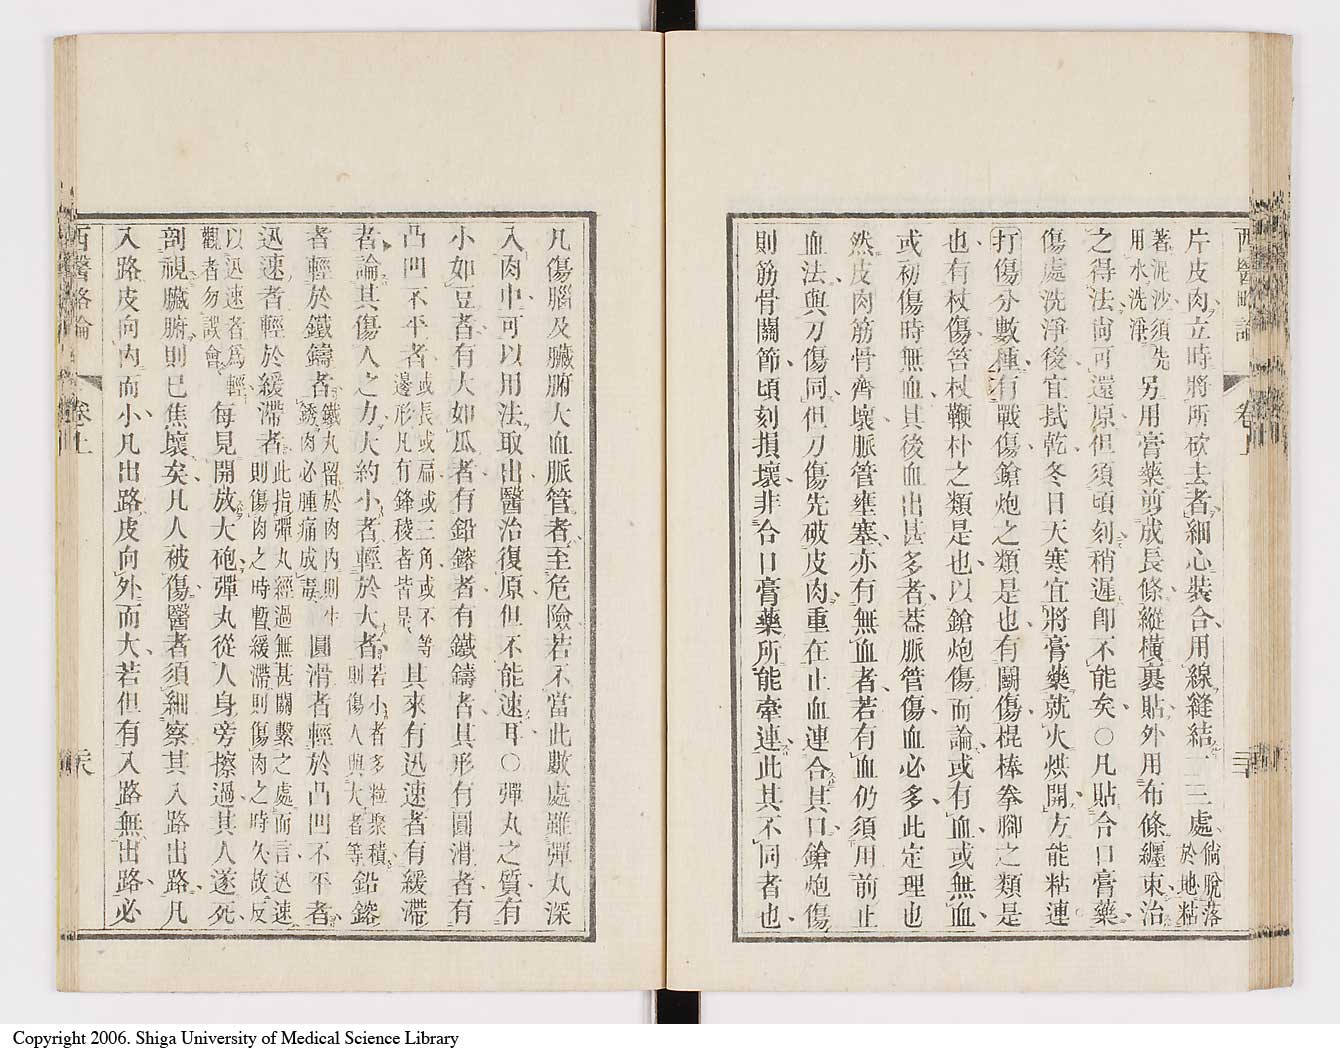 西醫略論
卷上
片皮肉立時將所砍去者細心裝合用線縫結一二處倘脫落於地粘
著泥沙須先用水洗淨另用膏藥剪成長條縱橫裹貼外用布條纏束治
之得法尙可還原但須頃刻稍遲卽不能矣○凡貼合口膏藥
傷處洗淨後宜拭乾冬日天寒宜將膏藥就火烘開方能粘連
打傷分數種有戰傷鎗炮之類是也有鬭傷棍棒拳腳之類是
也有杖傷笞杖鞭朴之類是也以鎗炮傷而論或有血或無血
或初傷時無血其後血出甚多者蓋脈管傷血必多此定理也
然皮肉筋骨齊壞脈管壅塞亦有無血者若有血仍須用前止
血法與刀傷同但刀傷先破皮肉重在止血連合其口鎗炮傷
則筋骨關節頃刻損壞非合口膏藥所能牽連此其不同者也
凡傷腦及臟腑大血脈管者至危險若不當此數處雖彈丸深
入肉中可以用法取出醫治復原但不能速耳○彈丸之質有
小如豆者有大如瓜者有鉛鎔者有鐵鑄者其形有圓滑者有
凸凹不平者或長或扁或三角或不等邊形凡有鋒稜者皆是其來有迅速者有緩滯
者論其傷人之力大約小者輕於大者若小者多粒聚積則傷人與大者等鉛鎔
者輕於鐵鑄者鐵丸留於肉內則生銹肉必腫痛成毒圓滑者輕於凸凹不平者
迅速者輕於緩滯者此指彈丸經過無甚關繫之處而言迅速則傷肉之時暫緩滯則傷肉之時久故反
以迅速者爲輕觀者勿誤會每見開放大砲彈丸從人身旁擦過其人遂死
剖視臟腑則已焦壞矣凡人被傷醫者須細察其入路出路凡
入路皮向內而小凡出路皮向外而大若但有入路無出路必
西醫略論
卷上